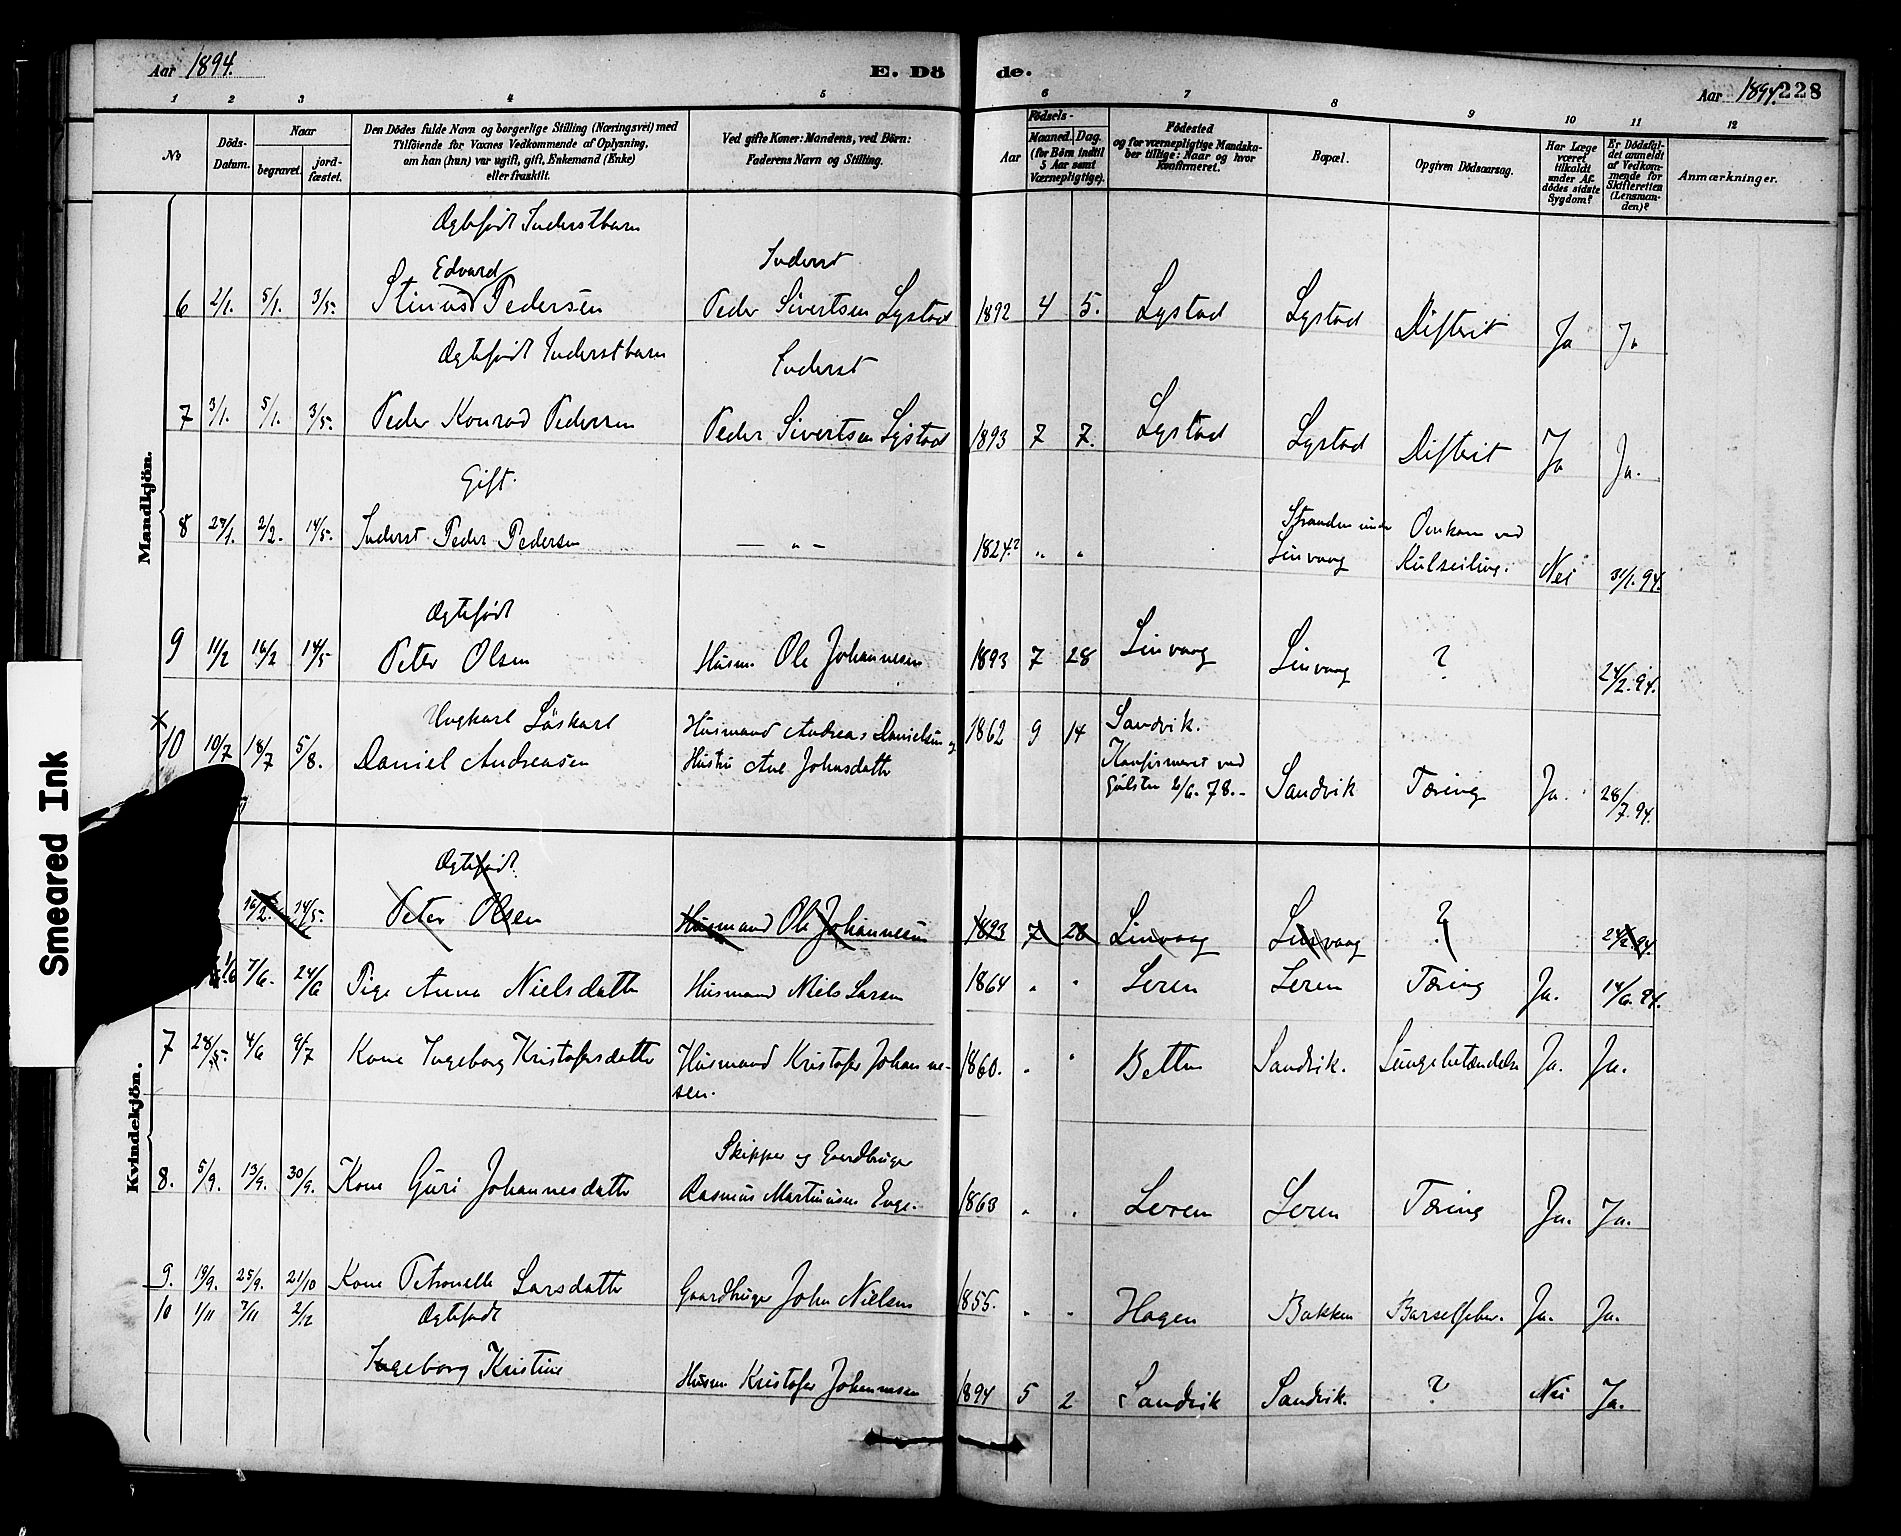 Aar 1894.
E. Dö de.
Aar 1894. 228
1 2 3 4 5 6 7 8 9 10 11 12
No
Döds-Datum.
Naar
begravet.
jord-fæstet.
Den Dödes fulde Navn og borgerlige Stilling (Næringsvei) med
Tilföiende for Voxnes Vedkommende af Oplysning,
om han (hun) var ugift, gift, Enkemand (Enke)
eller fraskilt.
Ved gifte Koner: Mandens, ved Börn:
Faderens Navn og Stilling.
Födsels-
Aar
Maaned. Dag.
(for Börn indtil
5 Aar samt
Værnepligtige).
Födested
og for værnepligtige Mandska-
ber tillige: Naar og hvor
Konfirmeret.
Bopæl.
Opgiven Dödsaarsag.
Har Læge
været
tilkaldt
under Af-
dödes sidste
Sygdom?
Er Dödsfal-
det anmeldt
af Vedkom-
mende for
Skifteretten
(Lensman-
den)?
Anmærkninger.
Mandkjön.
Ægtefødt Inderstbarn
Edvard Inderst
6 2/1. 5/1. 3/5. Stinus Pedersen Peder Sivertsen Lystad 1892 4 5. Lystad Lystad Difterit Ja Ja
Ægtefødt Inderstbarn Inderst
7 3/1. 5/1. 3/5. Peder Konrad Pedersen Peder Sivertsen Lystad 1893 7 7. Lystad Lystad Difterit Ja Ja.
Gift.
8 2/2. 14/5. Inderst Peder Pedersen — „ — 1824? „ „ Stranden under
Linvaag Omkom ved
Kulseiling. Nei 31/1. 94.
Ægtefødt
9 11/2 16/2 14/5 Peter Olsen Husm. Ole Johannesen 1893 7 28 Linvaag Linvaag ? 24/2. 94.
Ungkarl Löskarl
10 10/7 18/7 5/8. Daniel Andreasen Husmand Andreas Danielsen og
Hustru Ane Johnsdatter 1862 9 14 Sandvik.
Konfirmeret ved
78.- Sandvik Tæring Ja. 28/7. 94.
Kvindekjön.
Ægtefødt.
16/2. 14/5. Peter Olsen Husmand Ole Johannesen 1893 7 28 Linvaag Linvaag ? 24/2. 94.
7/6. 24/6 Pige Anna Nielsdatter Husmand Niels Larsen 1864 „ „ Leren Leren Tæring Ja. 14/6. 94.
7 28/5. 4/6 9/7 Kone Ingeborg Kristofersdatter Husmand Kristofer Johanne-
sen. 1860. „ „ Betten Sandvik. Lungebetændelse Ja. Ja.
Skipper og Gaardbruger
8. 5/9. 13/9. 30/9. Kone Guri Johannesdatter Rasmus Martinusen Enge. 1863 „ „ Leren Leren Tæring Ja. Ja.
9. 19/9. 25/9. 21/10 Kone Petronelle Larsdatter Gaardbruger John Nielsen 1855. „ „ Hagen Bakken Barselfeber. Ja. Ja.
10 1/11 7/11 2/12 Ægtefødt
Ingeborg Kristine Husm Kristofer Johannesen 1894 5 2 Sandvik Sandvik. ? Nei Ja.
Smeared Ink